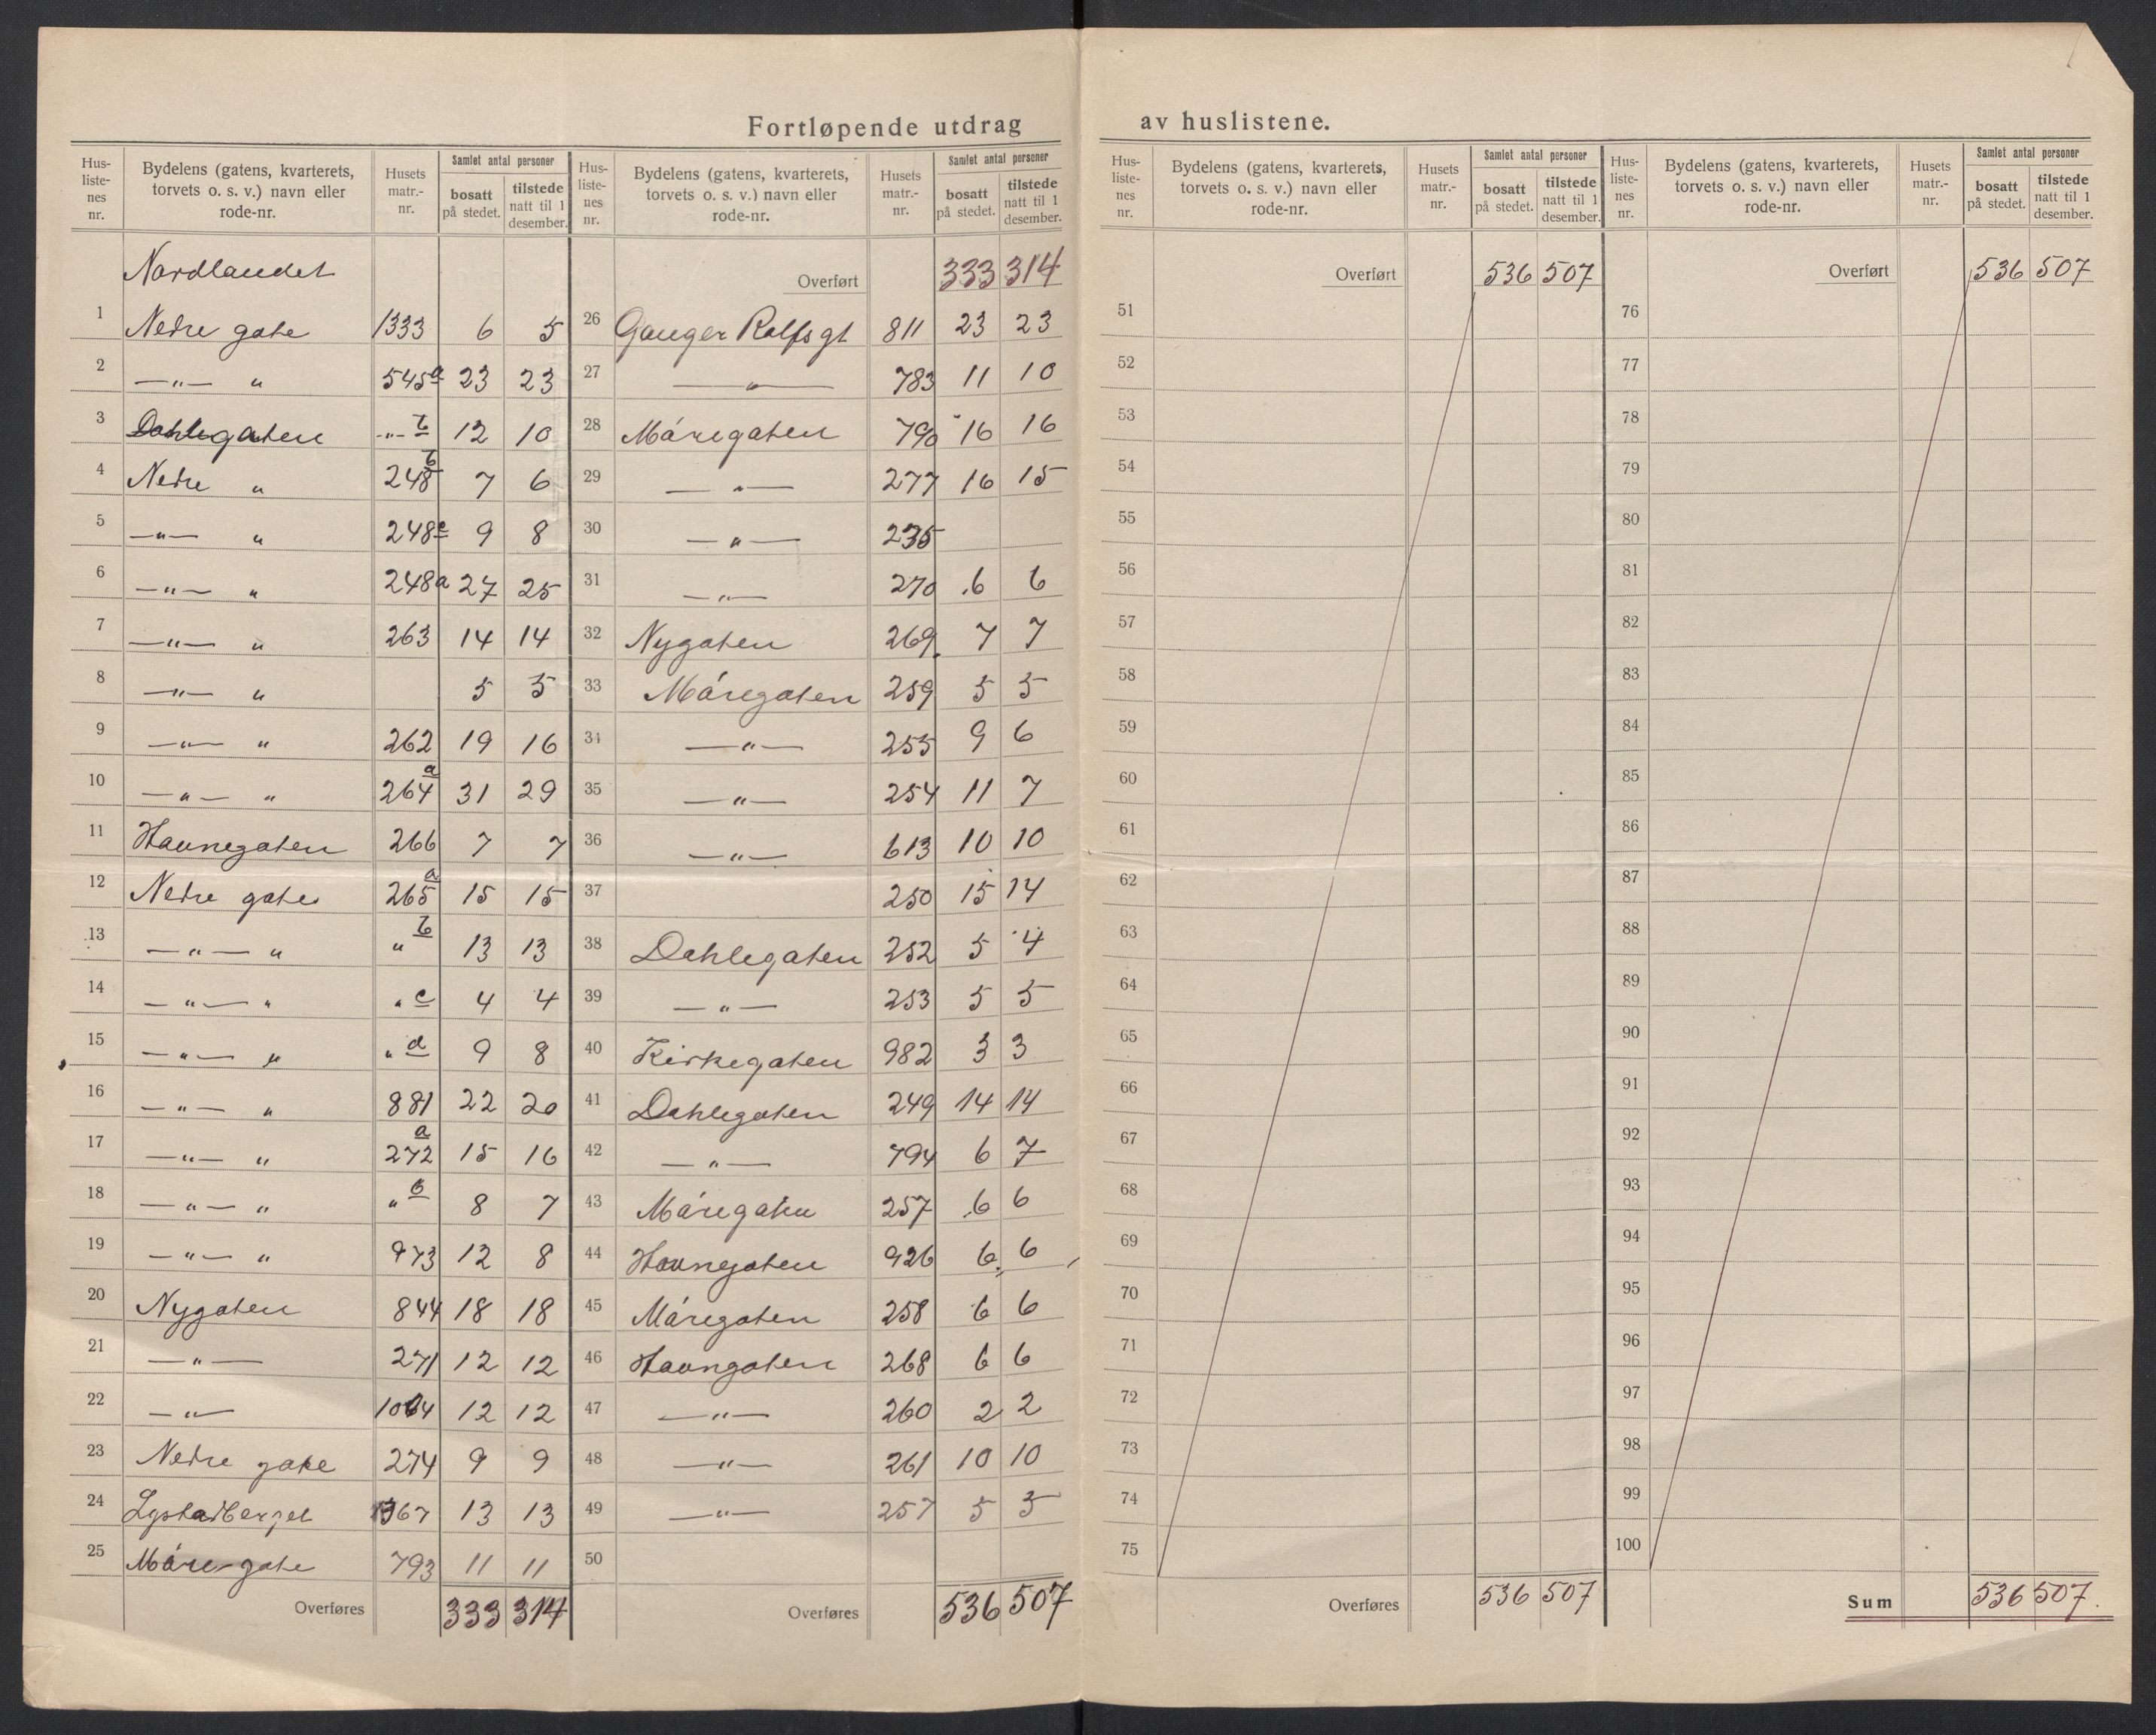 Fortløpende utdrag av huslistene.
Hus-listenes nr. | Bydelens (gatens, kvarterets, torvets o. s. v.) navn eller rode-nr. | Husets matr.-nr. | Samlet antal personer bosatt på stedet. | tilstede natt til 1 desember.
Nordlandet
1 Nedre gate 1333 6 5
2 —"— " 545a 23 23
3 Dahlegaten -"- b 12 10
4 Nedre " 248b 7 6
5 —"— " 248c 9 8
6 —"— " 248a 27 25
7 —"— " 263 14 14
8 —"— " 5 5
9 —"— " 262 19 16
10 —"— " 264a 31 29
11 Havnegaten 266 7 7
12 Nedre gate 265a 15 15
13 —"— " " b 13 13
14 —"— " " c 4 4
15 —"— " " d 9 8
16 —"— " 881 22 20
17 —"— " 272a 15 16
18 —"— " " b 8 7
19 —"— " 973 12 8
20 Nygaten 844 18 18
21 —"— 271 12 12
22 —"— 1064 12 12
23 Nedre gate 274 9 9
24 13 13
25 Møre-gate 793 11 11
Overføres 333 314
Hus-listenes nr. | Bydelens (gatens, kvarterets, torvets o. s. v.) navn eller rode-nr. | Husets matr.-nr. | Samlet antal personer bosatt på stedet. | tilstede natt til 1 desember.
Overført 333 314
26 Ganger Rolfs gt 811 23 23
27 —"— 783 11 10
28 Møregaten 790 16 16
29 —"— 277 16 15
30 —"— 235
31 —"— 270 6 6
32 Nygaten 269 7 7
33 Møregaten 259 5 5
34 —"— 255 9 6
35 —"— 254 11 7
36 —"— 613 10 10
37 250 15 14
38 Dahlegaten 252 5 4
39 —"— 253 5 5
40 Kirkegaten 982 3 3
41 Dahlegaten 249 14 14
42 —"— 794 6 7
43 Møregaten 257 6 6
44 Havnegaten 926 6 6
45 Møregaten 258 6 6
46 Havngaten 268 6 6
47 —"— 260 2 2
48 —"— 261 10 10
49 —"— 257 5 5
50
Overføres 536 507
Hus-listenes nr. | Bydelens (gatens, kvarterets, torvets o. s. v.) navn eller rode-nr. | Husets matr.-nr. | Samlet antal personer bosatt på stedet. | tilstede natt til 1 desember.
Overført 536 507
51
52
53
54
55
56
57
58
59
60
61
62
63
64
65
66
67
68
69
70
71
72
73
74
75
Overføres 536 507
Hus-listenes nr. | Bydelens (gatens, kvarterets, torvets o. s. v.) navn eller rode-nr. | Husets matr.-nr. | Samlet antal personer bosatt på stedet. | tilstede natt til 1 desember.
Overført 536 507
76
77
78
79
80
81
82
83
84
85
86
87
88
89
90
91
92
93
94
95
96
97
98
99
100
Sum 536 507.